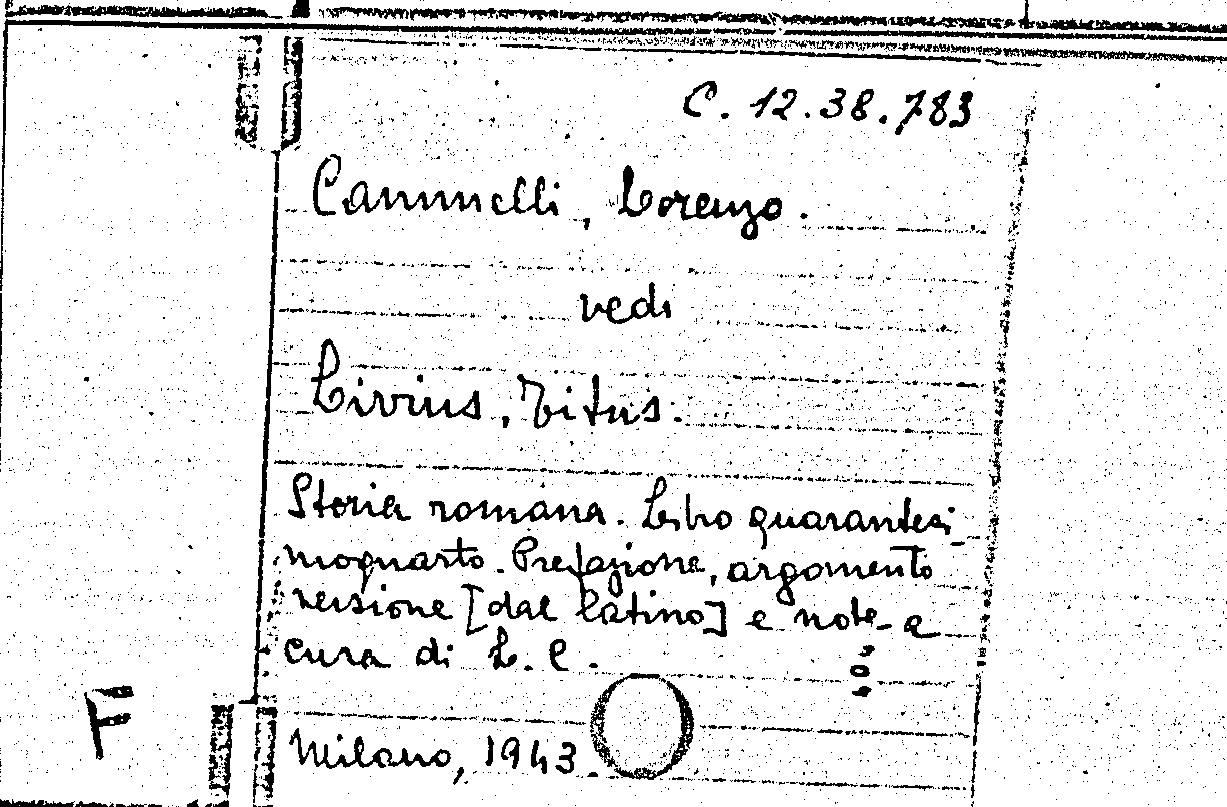 C. 12.38.783
Cammelli, Lorenzo.
vedi
Livius, Titus.
Storia romana. Libro quarantesi_
moquarto. Prefazione, argomento
versione [dal latino] e note a
cura di L. C.
Milano, 1943.
F